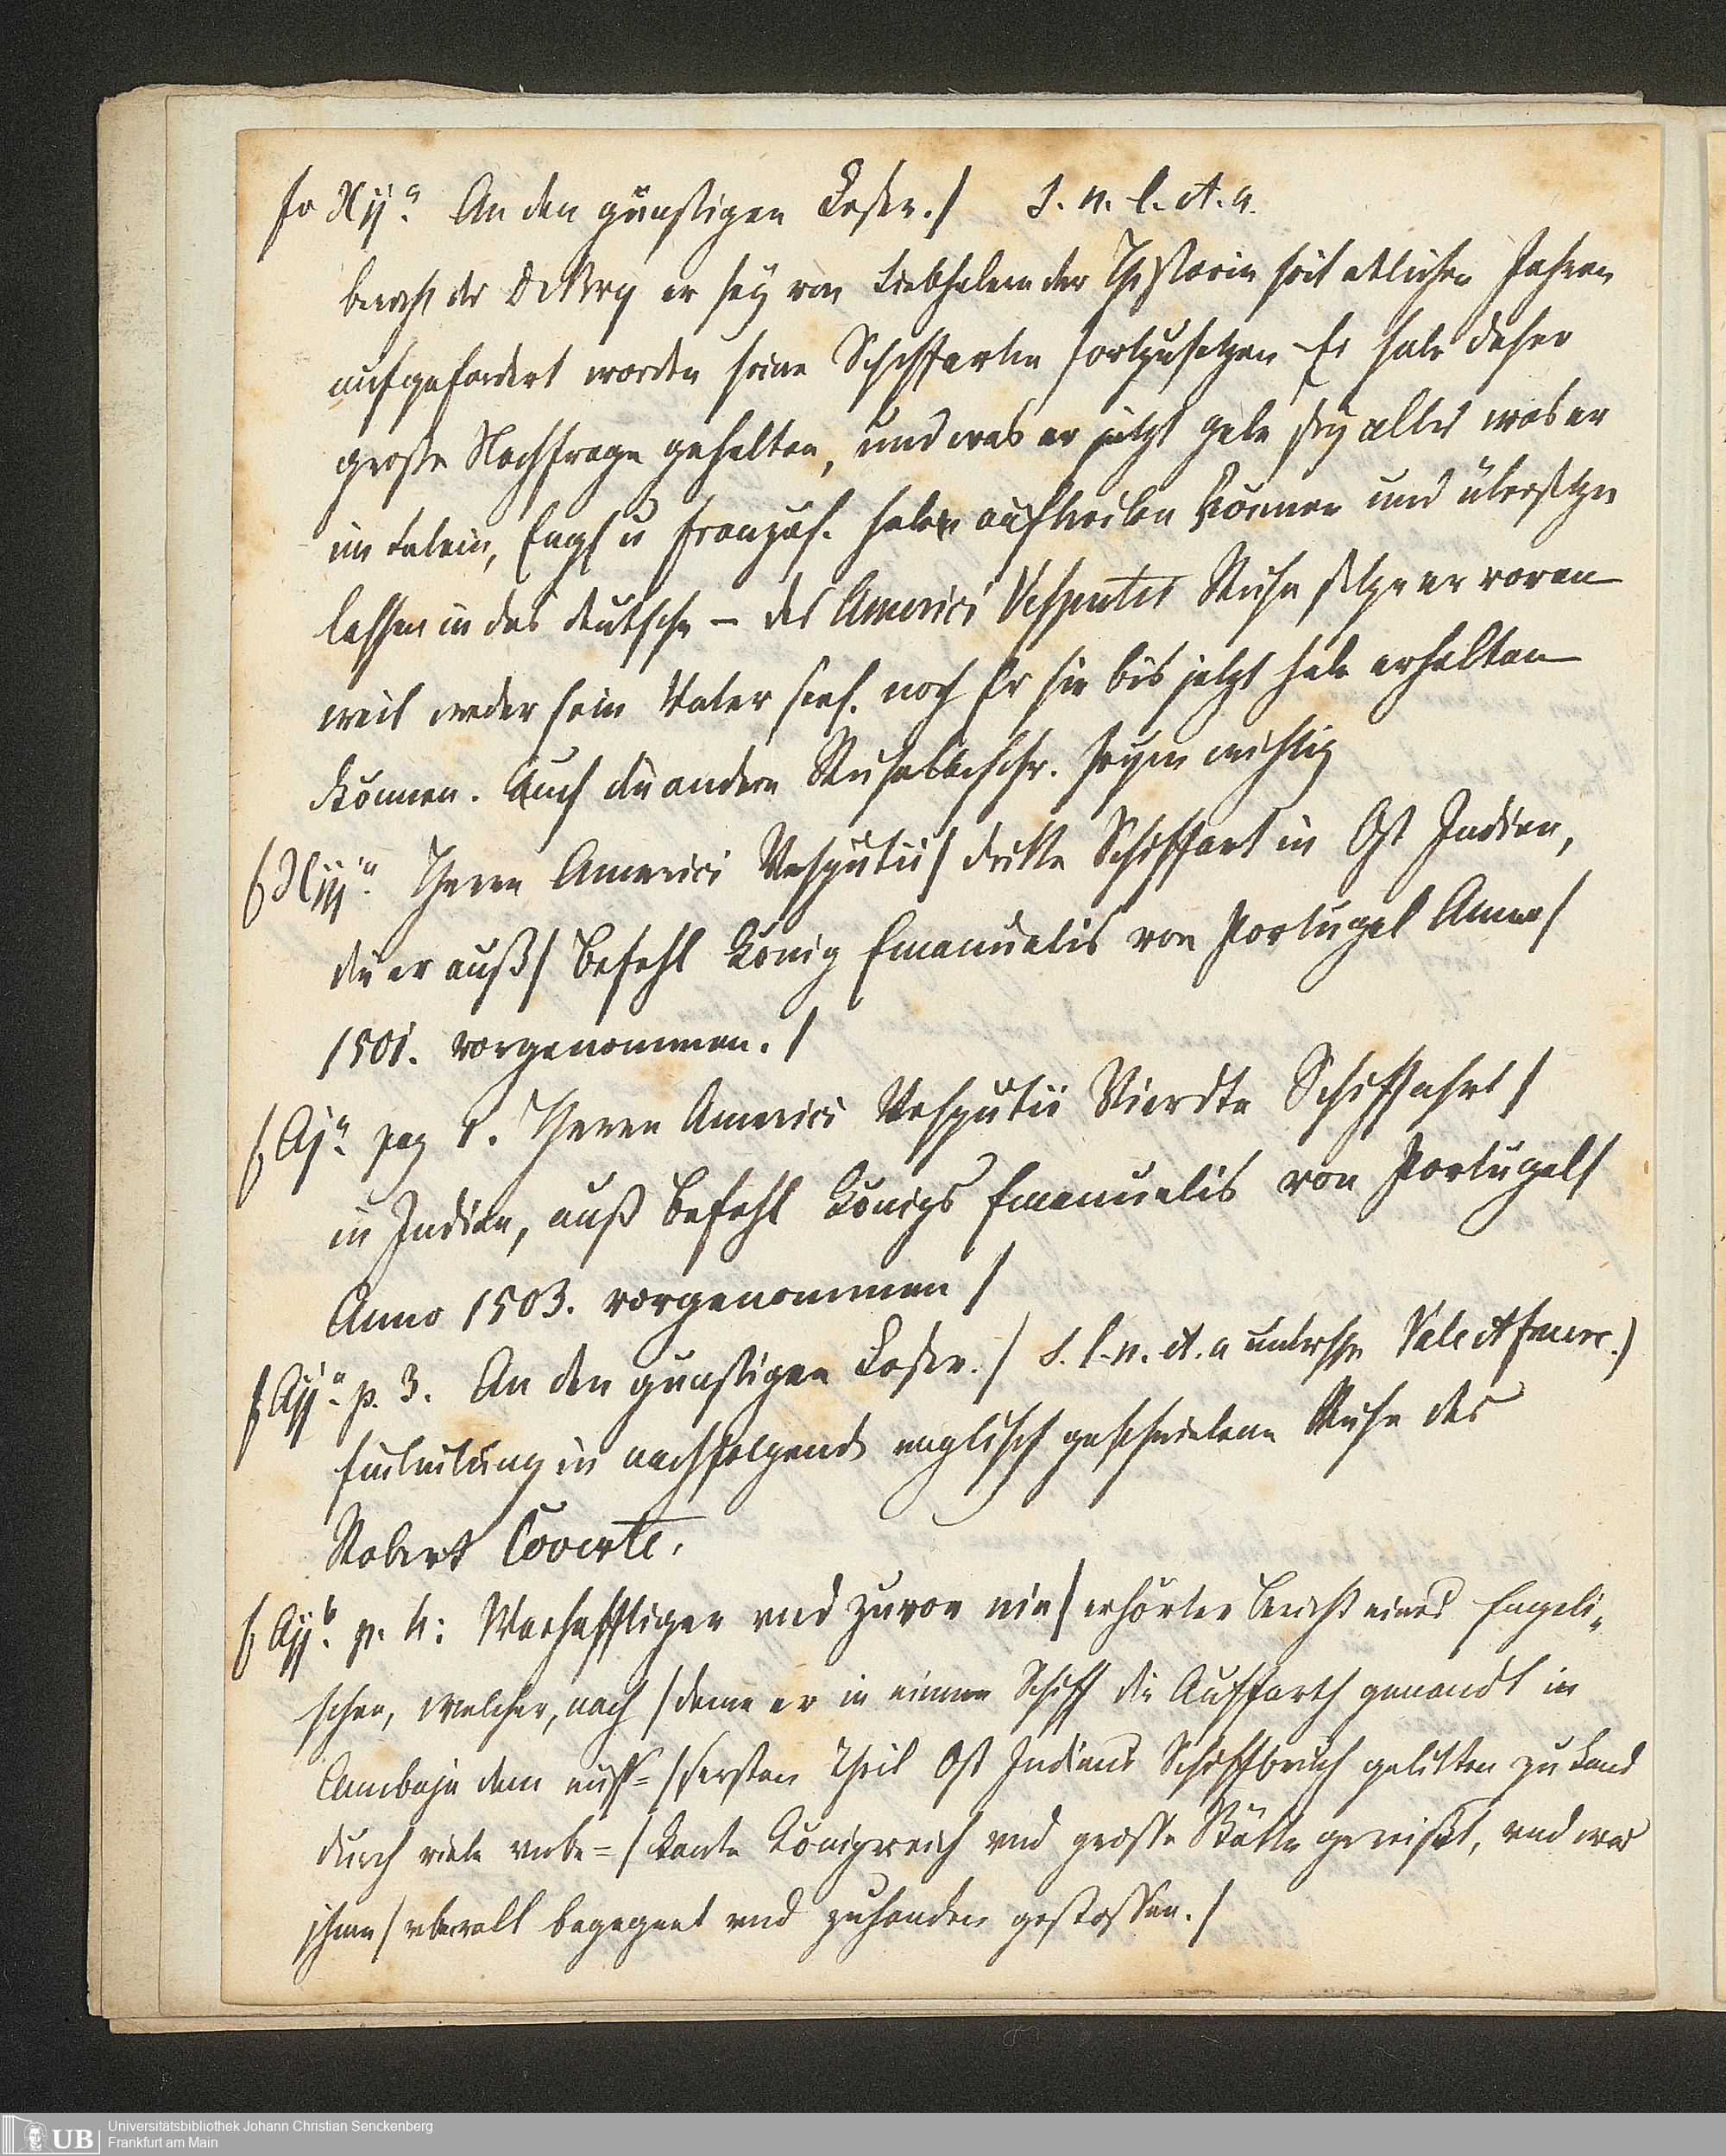 fo )(ij.a An den günstigen Leser./ S. n. l. et. a.
bericht der De Bry er sey von Liebhabern der Historien seit etlichen Jahren
aufgefordert worden seine Schiffarten fortzusetzen Er habe daher
große Nachfrage gehalten, und was er jetzt gebe sey alles was er
im Latein, Engl u französ. haben auftreiben können und übersetzen
lassen in das deutsche – des Americi Vesputii Reise setze er voran
weil weder sein Vater seel. noch Er sie bis jetzt habe erhalten
können. Auch die andern Reisebeschr. seyen wichtig
f )(iij.a Herrn Americi Vesputii/ dritte Schiffart in Ost Indien,
die er auß/ Befehl König Emanuelis von Portugal Anno/
1501. vorgenommen./
f Aj.a pag 1. Herrn Americi Vesputii Vierdte Schiffahrt/
in Indien, auß Befehl Königs Emanuelis von Portugal/
Anno 1503. vorgenommen/
f Aij.a p. 3. An den günstigen Leser./ S. l. n. et. a unterschr Vale et fruere.)
Einleitung in nachfolgende englisch geschriebene Reise des
Robert Coverte.
f Aij.b p. 4: Warhafftiger vnd zuvor nie/ erhörter Bericht eines Engeli„
schen, welcher, nach/ deme er in einem Schiff die Auffarth genandt in
Cambaja dem euss=/ sersten Theil Ost Indiens Schiffbruch gelitten zu Land
durch viele vnbe=/ kante Königreich vnd grosse Stätte gereißt, vnd was
ihme/ vberall begegnet vnd zuhanden gestossen./
Universitätsbibliothek Johann Christian Senckenberg
Frankfurt am Main
UB